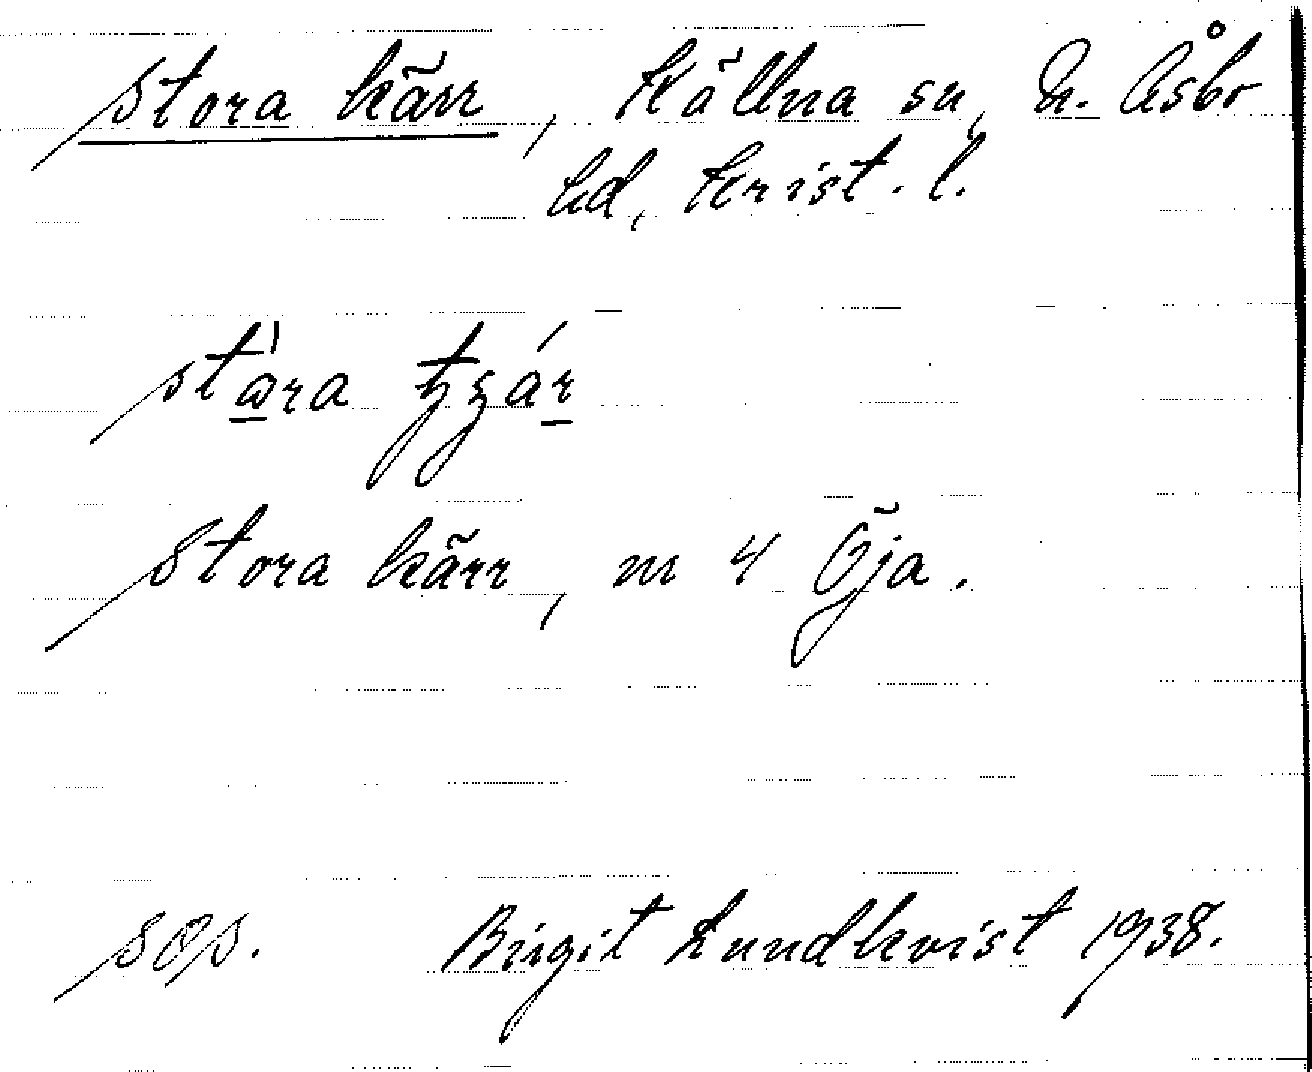 Stora kärr, Källna sn, N. Åsbo
hd, Krist. l.
Stora kärr, m 4 Öja.
Birgit Lundkvist 1938.